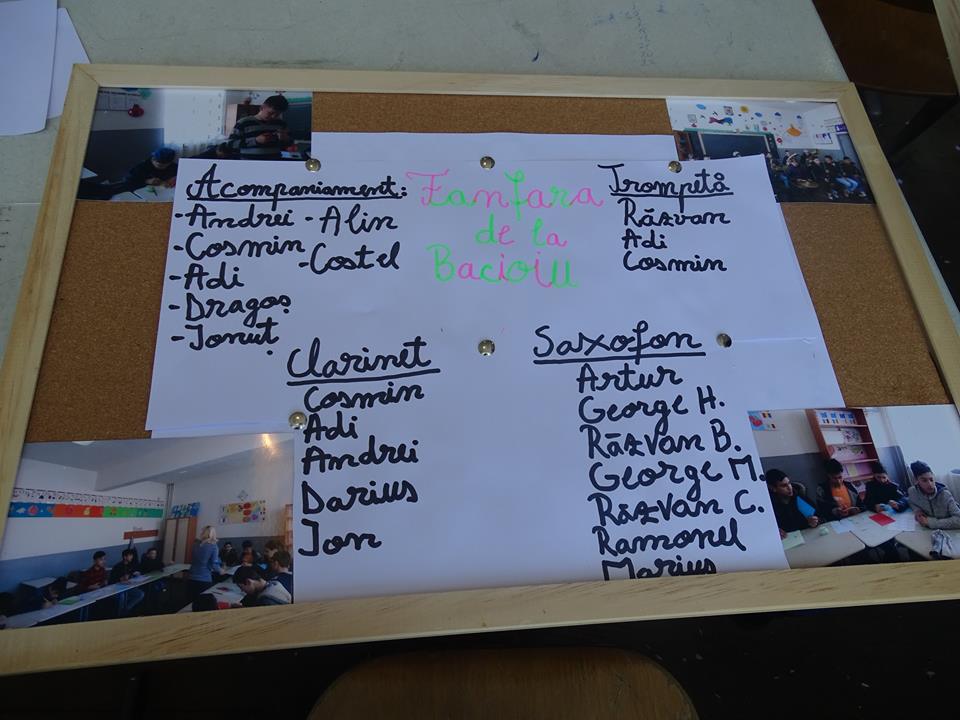 Acompaniament:
-Andrei -Alin
-Cosmin
-Costel
-Adi
-Dragoș
-Ionuț
Fanfara
de la
Bacioiu
Trompetă
Răzvan
Adi
Cosmin
Clarinet
Cosmin
Adi
Andrei
Darius
Ion
Saxofon
Artur
George H.
Răzvan B.
George M.
Răzvan C.
Ramonel
Marius